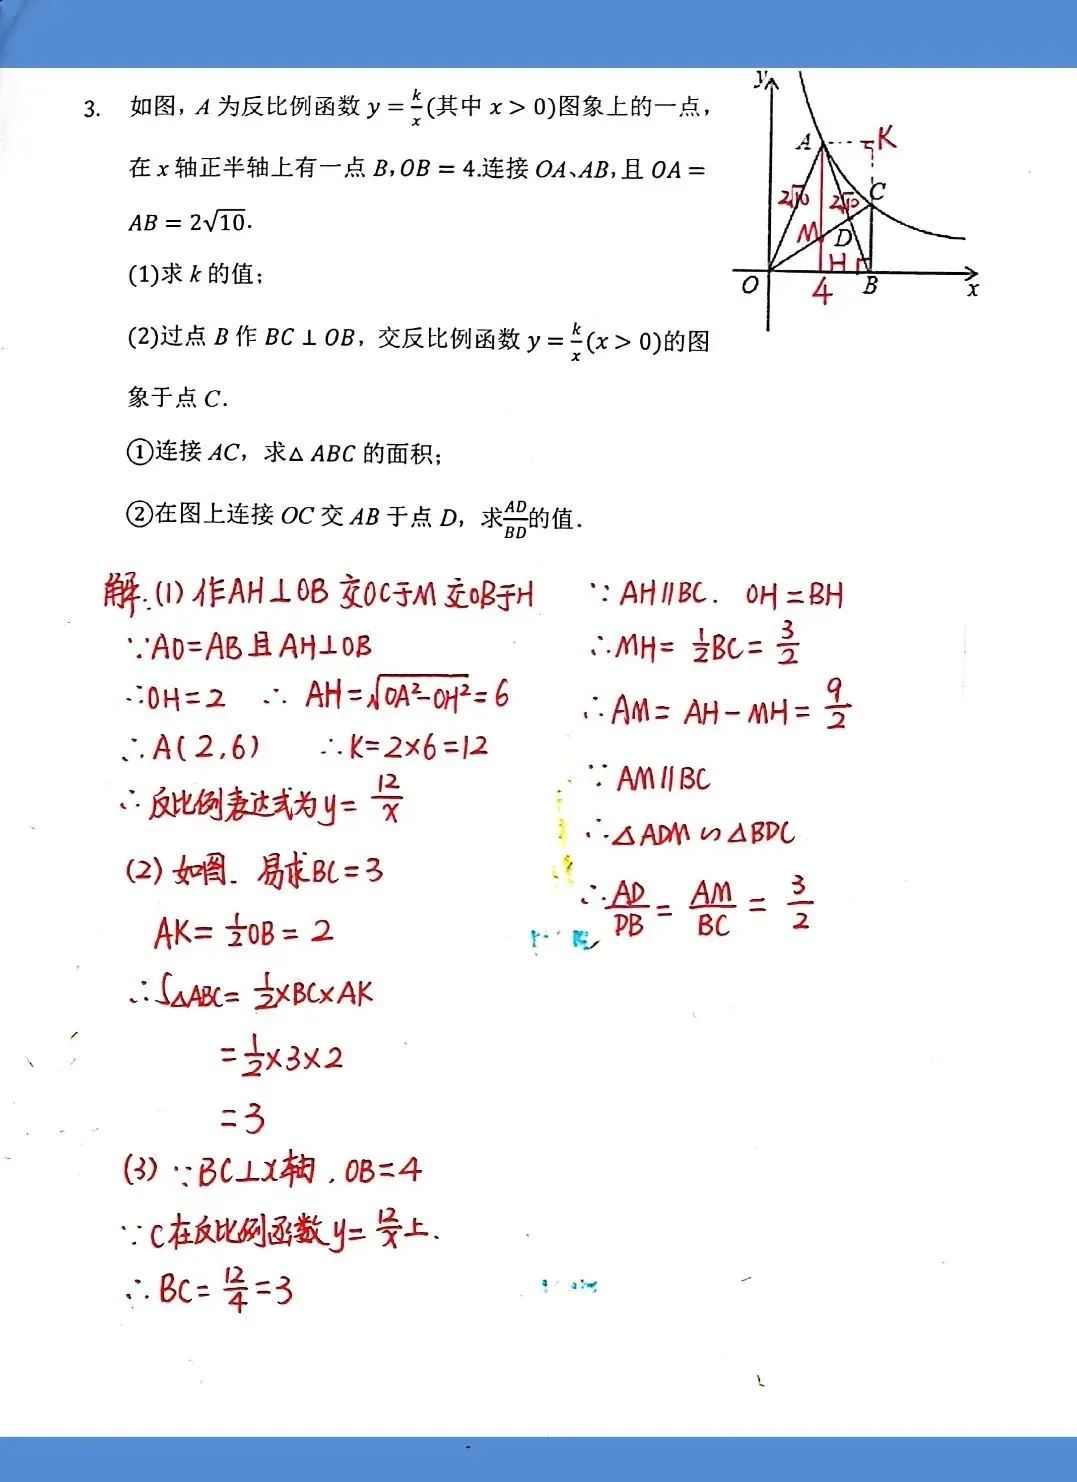 3. 如图，A 为反比例函数 y = k/x (其中 x > 0)图象上的一点，
在 x 轴正半轴上有一点 B，OB = 4.连接 OA、AB，且 OA =
AB = 2√10.
(1)求 k 的值；
(2)过点 B 作 BC ⊥ OB，交反比例函数 y = k/x (x > 0)的图
象于点 C.
①连接 AC，求△ ABC 的面积；
②在图上连接 OC 交 AB 于点 D，求 AD/BD 的值.
y
A
K
C
2√10
2√10
M
D
H
O
4
B
x
解.(1) 作AH⊥OB 交OC于M 交OB于H
∵AO=AB 且 AH⊥OB
∴OH=2 ∴ AH=√(OA²-OH²)=6
∴A(2,6) ∴K=2×6=12
∴反比例表达式为y= 12/x
(2) 如图. 易求BC=3
AK= 1/2 OB = 2
∴S△ABC= 1/2×BC×AK
= 1/2×3×2
=3
(3) ∵BC⊥X轴, OB=4
∵C在反比例函数y= 12/x 上.
∴BC= 12/4 =3
∵AH∥BC. OH=BH
∴MH= 1/2 BC= 3/2
∴AM= AH-MH= 9/2
∵AM∥BC
∴△ADM∽△BDC
∴ AD/DB = AM/BC = 3/2